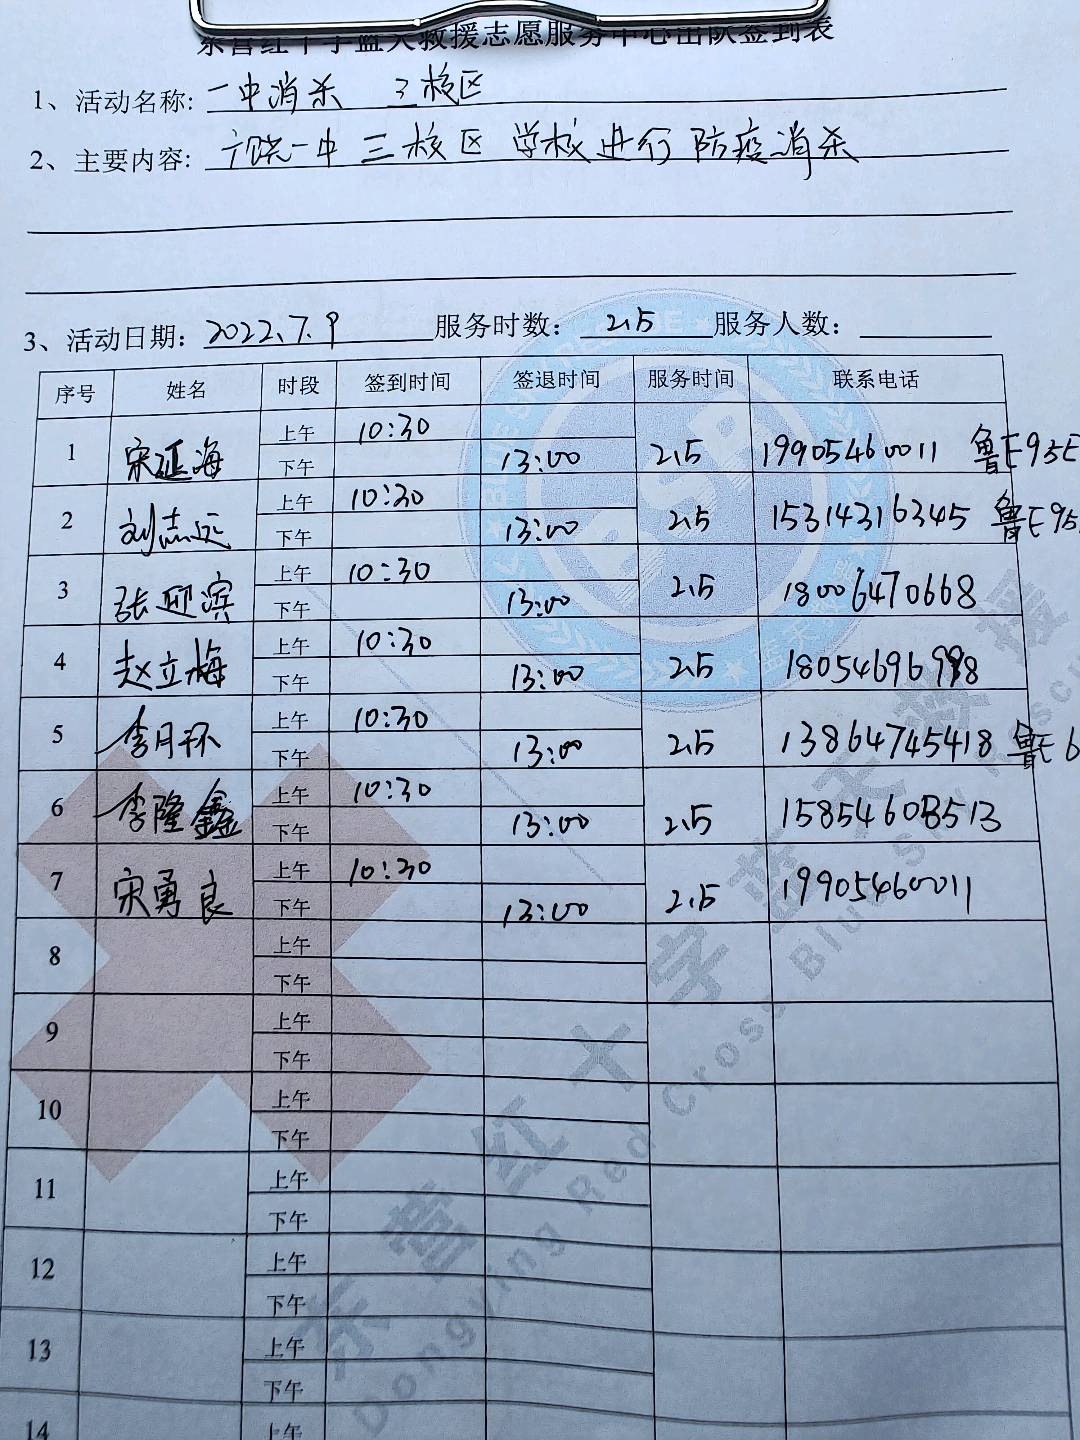 东营红十字蓝天救援志愿服务中心出队签到表
1、活动名称: 一中消杀 3校区
2、主要内容: 广饶一中三校区 学校进行防疫消杀
3、活动日期: 2022.7.9 服务时数: 2.5 服务人数:
序号 姓名 时段 签到时间 签退时间 服务时间 联系电话
1 宋延海 上午 10:30 2.5 19905460011 鲁E95E
下午 13:00
2 刘志远 上午 10:30 2.5 15314316345 鲁E95
下午 13:00
3 张迎滨 上午 10:30 2.5 18006470668
下午 13:00
4 赵立梅 上午 10:30 2.5
下午 13:00
5 李月环 上午 10:30 2.5 13864745418 鲁E6
下午 13:00
6 李隆鑫 上午 10:30 2.5
下午 13:00
7 宋勇良 上午 10:30 2.5 19905460011
下午 13:00
8 上午
下午
9 上午
下午
10 上午
下午
11 上午
下午
12 上午
下午
13 上午
下午
14 上午
东营红十字蓝天救援
Dongying Red Cross Bluesky Rescu